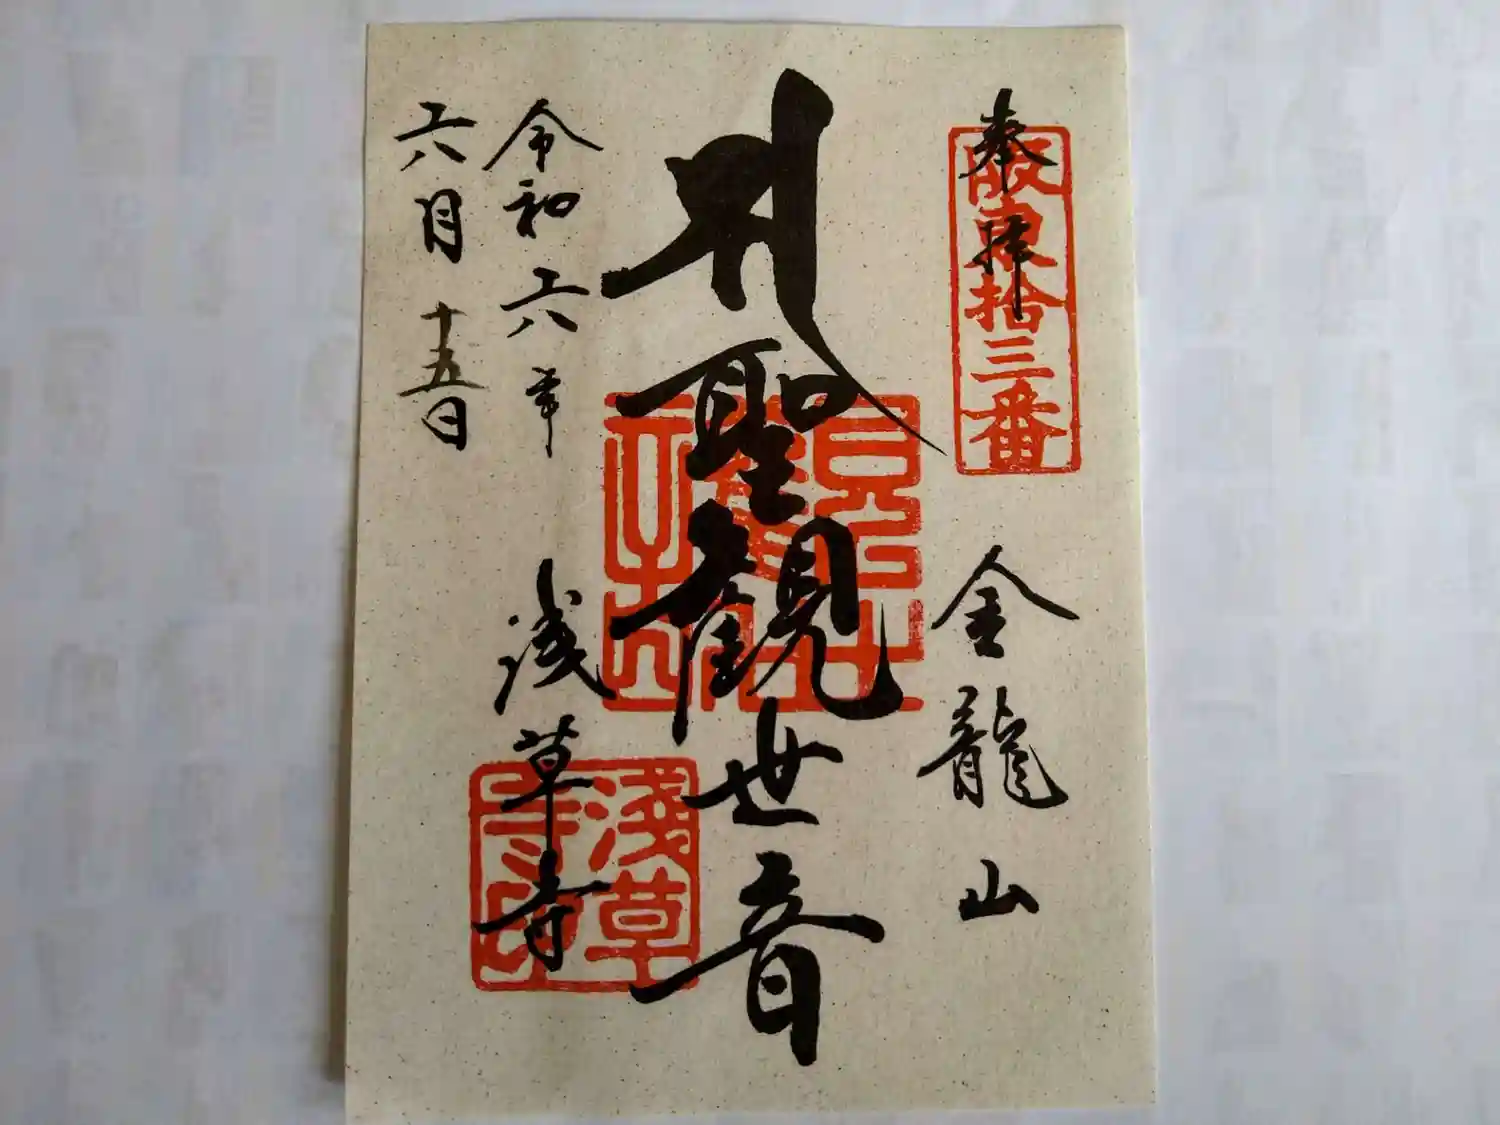 奉拝
坂東拾三番
金龍山
聖観世音
浅草寺
淺草寺印
令和六年
六月十五日